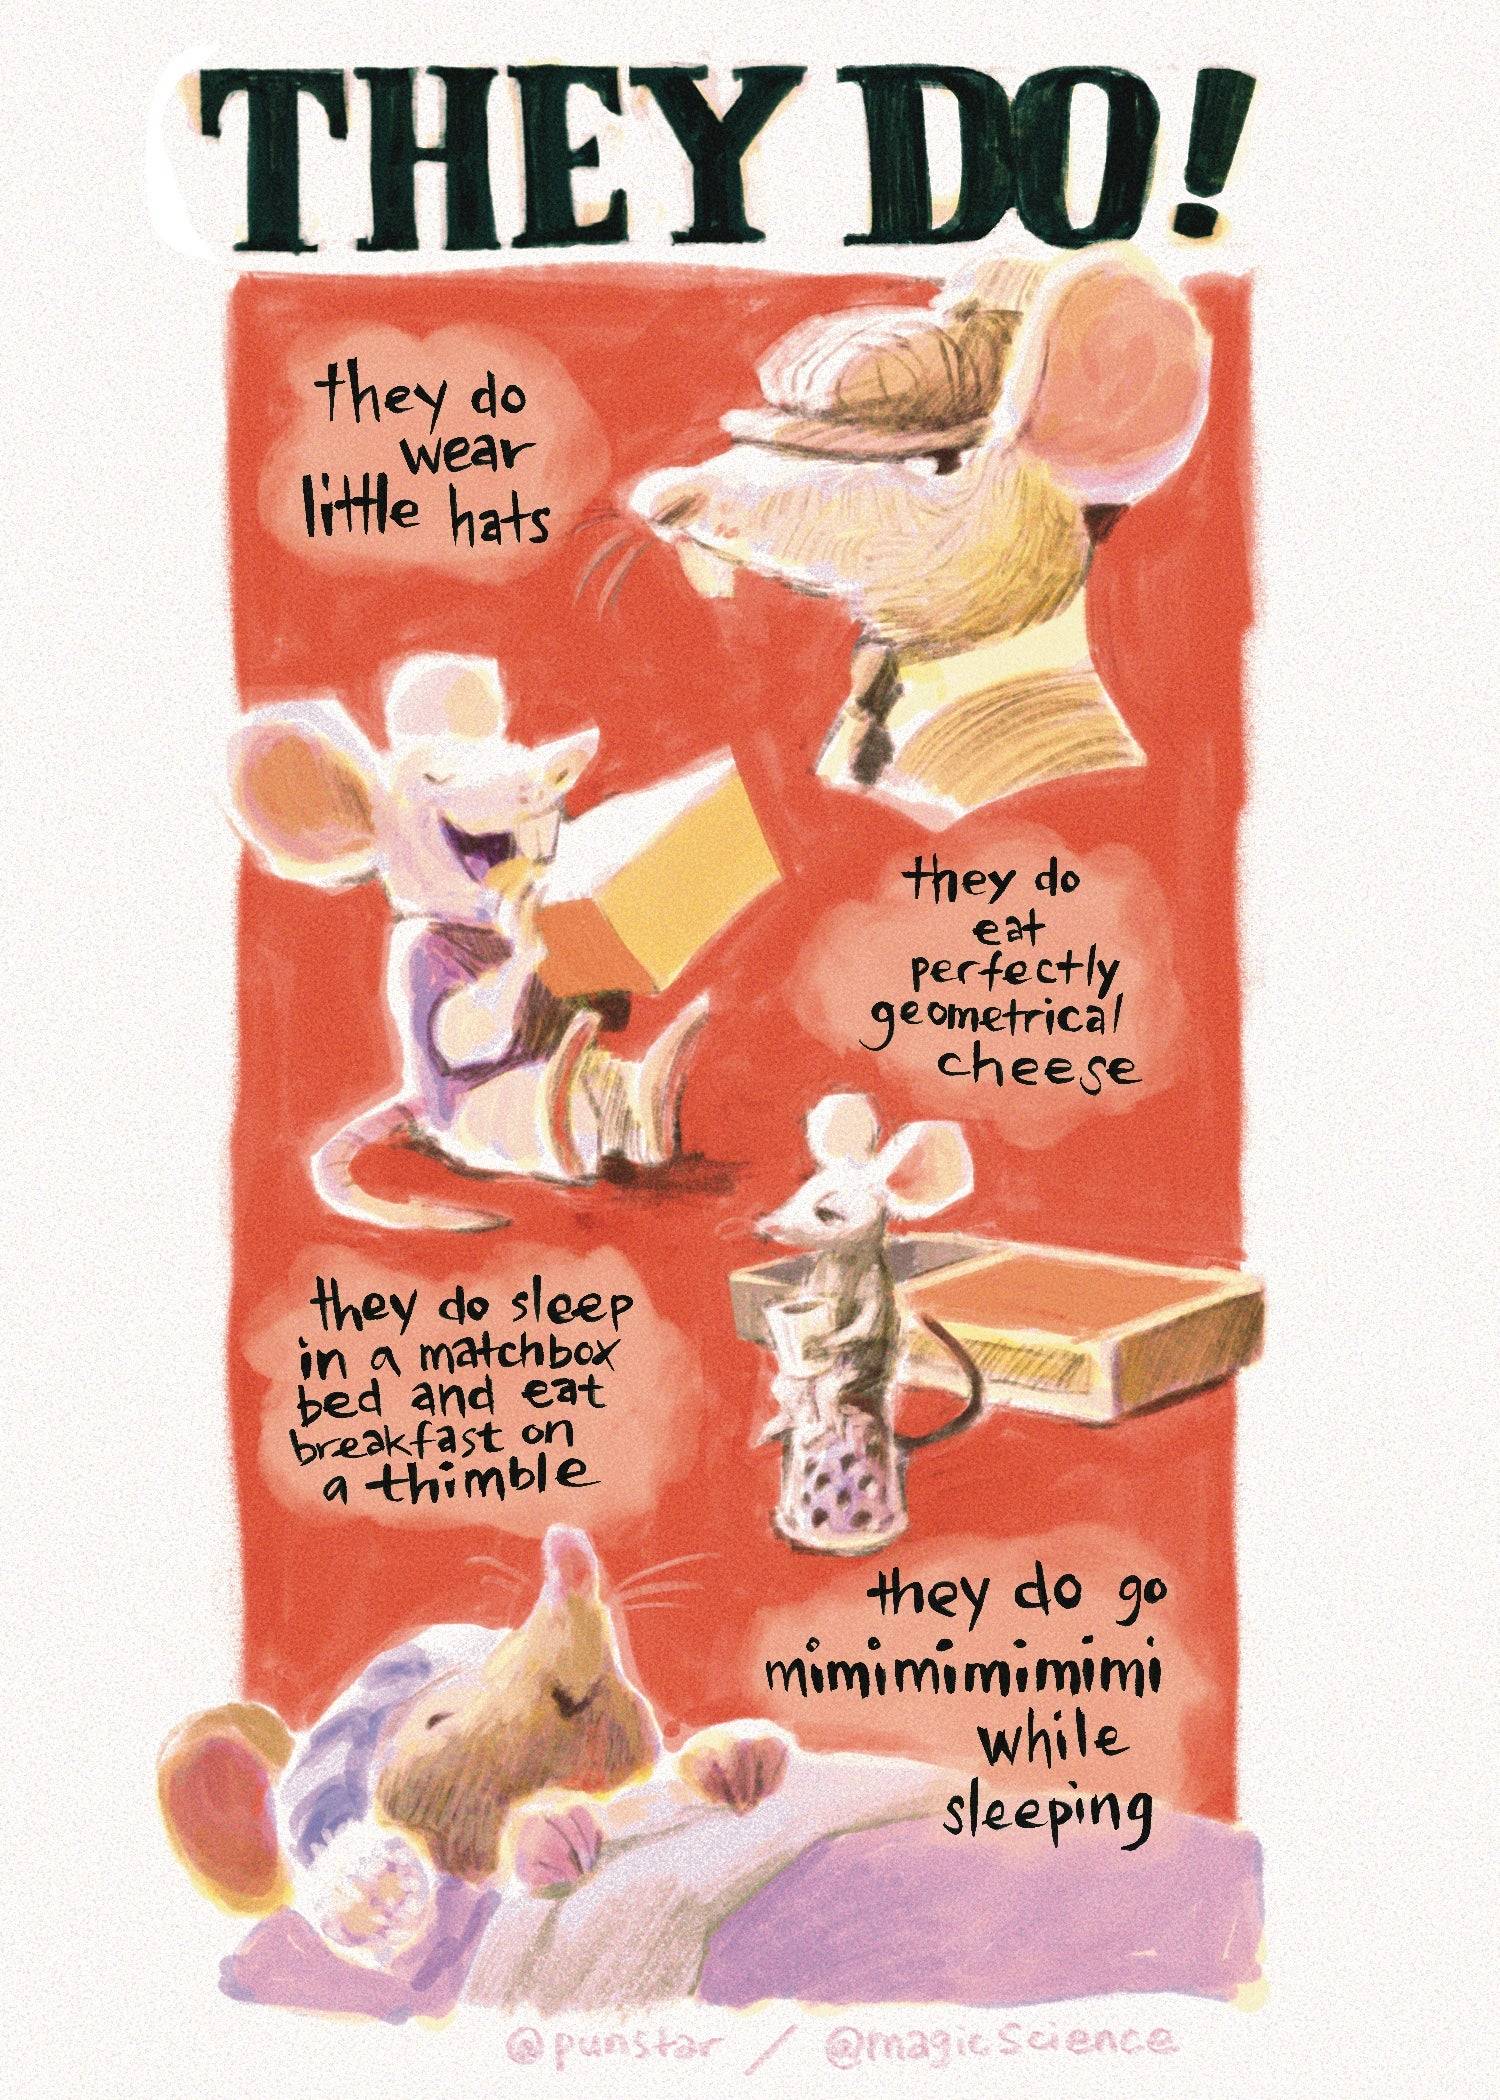 THEY DO!
they do
wear
little hats
they do
eat
perfectly
geometrical
cheese
they do sleep
in a matchbox
bed and eat
breakfast on
a thimble
they do go
mimimimimimi
while
sleeping
@punstar / @magicScience